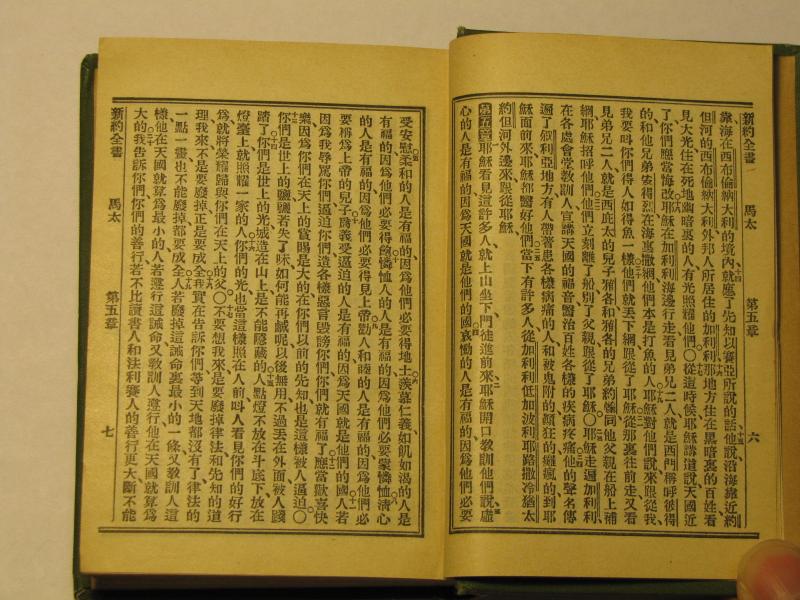 新約全書 馬太 第五章 六
靠海在西布倫納大利的境內就應了先知以賽亞所說的話他說沿海靠近約
但河的西布倫納大利外邦人所居住的加利利那地方住在黑暗裏的百姓看
見大光住在死地幽暗裏的人有光照耀他們○從這時候耶穌講道說天國近
了你們應當悔改耶穌在加利利海邊行走看見弟兄二人就是西門稱呼彼得
的和他兄弟安得烈在海裏撒網他們本是打魚的人耶穌對他們說來跟從我
我要叫你們得人如得魚一樣他們就丟下網跟從了耶穌從那裏往前走又看
見弟兄二人就是西庇太的兒子雅各和雅各的兄弟約翰同他父親在船上補
網耶穌招呼他們他們立刻離了船別了父親跟從了耶穌○耶穌走遍加利利
在各處會堂教訓人宣講天國的福音醫治百姓各樣的疾病疼痛他的聲名傳
遍了叙利亞地方有人帶著患各樣病痛的人和被鬼附的癲狂的癱瘋的到耶
穌面前來耶穌都醫好他們當下有許多人從加利利低加波利耶路撒冷猶太
約但河外邊來跟從耶穌
第五章 耶穌看見這許多人就上山坐下門徒進前來耶穌開口教訓他們說虛
心的人是有福的因爲天國就是他們的國哀慟的人是有福的因爲他們必要
受安慰柔和的人是有福的因爲他們必要得地土羨慕仁義如飢如渴的人是
有福的因爲他們必要得飽憐恤人的人是有福的因爲他們必要蒙憐恤清心
的人是有福的因爲他們必要得見上帝勸人和睦的人是有福的因爲他們必
要稱爲上帝的兒子爲義受逼迫的人是有福的因爲天國就是他們的國人若
因爲我辱罵你們逼迫你們造各樣惡言毀謗你們你們就有福了應當歡喜快
樂因爲你們在天上的賞賜是大的在你們以前的先知也是這樣被人逼迫○
你們是世上的鹽鹽若失了味如何能再鹹呢以後無用不過丟在外面被人踐
踏了你們是世上的光城造在山上是不能隱藏的人點燈不放在斗底下放在
燈臺上就照耀一家的人你們的光也當這樣照在人前叫人看見你們的好行
爲就將榮耀歸與你們在天上的父○不要想我來是要廢掉律法和先知的道
理我來不是要廢掉正是要成全我實在告訴你們等到天地都沒有了律法的
一點一畫也不能廢掉都要成全人若廢掉這誡命裏最小的一條又教訓人這
樣他在天國就算爲最小的人若遵行這誡命又教訓人遵行他在天國就算爲
大的我告訴你們你們的善行若不比讀書人和法利賽人的善行更大斷不能
新約全書 馬太 第五章 七